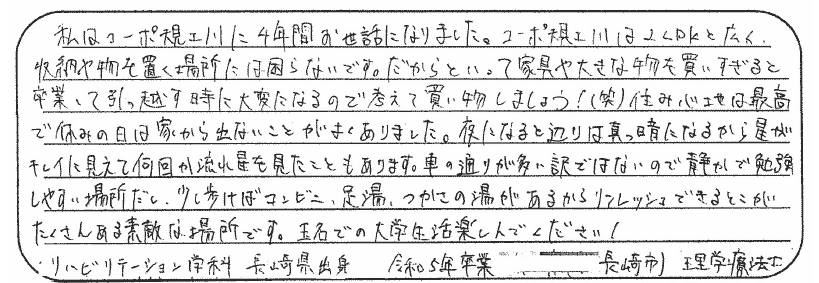 私はコーポ規工川に4年間お世話になりました。コーポ規工川は2LDKと広く、
収納や物を置く場所には困らないです。だからといって家具や大きな物を買いすぎると
卒業して引っ越す時に大変になるので考えて買い物しましょう！(笑)住み心地は最高
で休みの日は家から出ないことがよくありました。夜になると辺りは真っ暗になるから星が
キレイに見えて何回か流れ星も見たこともあります。車の通りが多い訳ではないので静かで勉強
しやすい場所だし、少し歩けばコンビニ、足湯、つかさの湯があるからリフレッシュできるとこが
たくさんある素敵な場所です。玉名での大学生活楽しんでください！
リハビリテーション学科 長崎県出身 令和5年卒業 長崎市 理学療法士